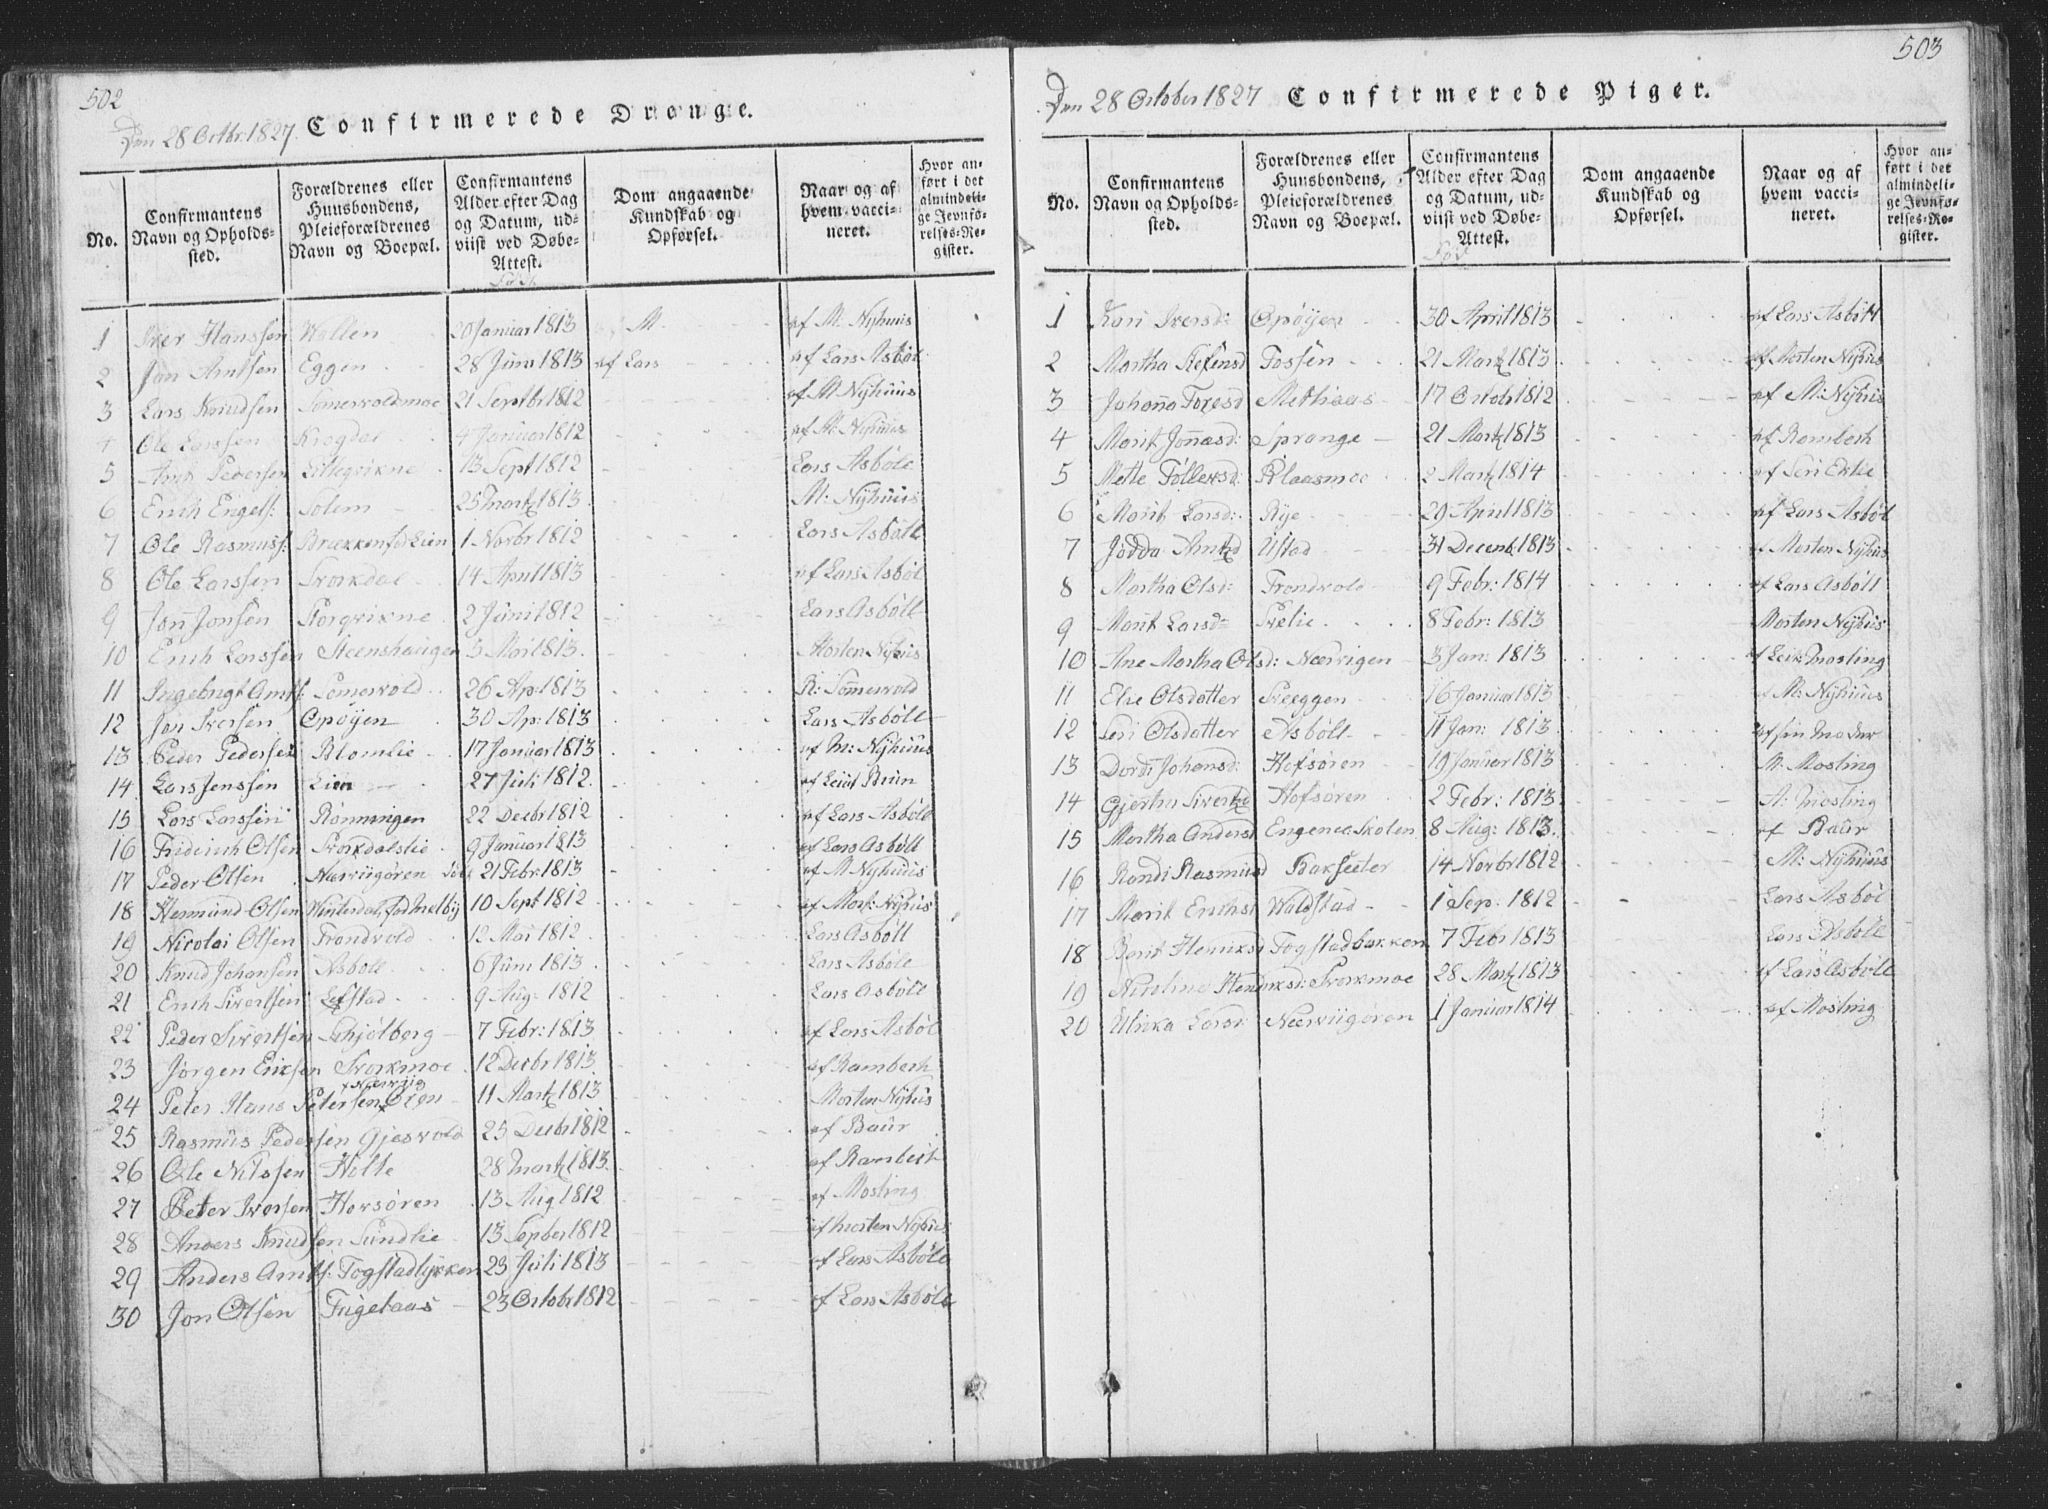 502
Den 28 Octbr. 1827. Confirmerede Drenge.
No. | Confirmantens Navn og Opholdssted. | Forældrenes eller Huusbondens, Pleieforældrenes Navn og Boepæl. | Confirmantens Alder efter Dag og Datum, udviist ved Døbe-Attest. | Dom angaaende Kundskab og Opførsel. | Naar og af hvem vaccineret. | Hvor anført i det almindelige Jevnførelses-Register.
Fød
1 Iver Hanssen Wollen 20 Januar 1813 M. af M. Nyhuus
2 Jon Arntsen Eggen 28 Juni 1813 af Lars af Lars Asbøl
3 Lars Knudsen Somervoldmoe 21 Septbr 1812 af M. Nyhuus
4 Ole Larssen Krogdal 4 Januar 1812 af M. Nyhuus
5 Arnt Pedersen Littlegvikne 13 Sept 1812 Lars Asböle
6 Erich Engels: Solem 25 Martz 1813 M: Nyhuus
7 Ole Rasmuss: Brækken fød Lien 1 Novbr 1812 Lars Asböll
8 Ole Larssen Svorkdal 14 April 1813 af Lars Asböl
9 Jon Jonsen Storqvikne 2 Junii 1812 Lars Asböll
10 Erich Larssen Steenshaugen 3 Mai 1813 Morten Nyhus
11 Ingebrigt Arnts: Somervold 26 Ap: 1813 R: Somervold
12 Jon Iversen Opöyen 30 Ap: 1813 Lars Asböll
13 Peder Pedersen Blomlie 17 Januar 1813 af M: Nyhuus
14 Lars Jenssen Lien 27 Juli 1812 af Leiut Brun
15 Lars Larssen Rönningen 22 Decbr 1812 af Lars Asböll
16 Friderich Olsen Svorkdalslie 9 Januar 1813 af Lars Asböll
17 Peder Olsen Nærviigören 21 Febr: 1813 af M Nyhuus
18 Hermund Olsen Winterdal, fød Melby 10 Sept 1812 af Mort: Nyhus
19 Nicolai Olsen Trondvold 12 Mai 1812 Lars Asböll
20 Knud Johansen Asböll 6 Juni 1813 Lars Asböle
21 Erich Sivertsen Lefstad 9 Aug: 1812 Lars Asböll
22 Peder Sivertsen Schjölberg 7 Febr: 1813 af Lars Asböl
23 Jörgen Erichsen Svorkmoe 12 Decbr 1813 af Rambech
24 Peter Hans Petersen Öien 11 Martz 1813 Morten Nyhus
x Nærviig
25 Rasmus Pedersen Gjesvold 25 Decbr 1812 af Baur
26 Ole Nilssen Holte 28 Martz 1813 af Rambech
27 Peter Iversen Hovsören 13 Aug 1812 af Mosling
28 Anders Knudsen Sundlie 13 Sepber 1812 af Morten Nyhus
29 Anders Arnts: Fogstadlykken 23 Juli 1813 af Lars Asböle
30 Jon Olsen Fugelaas 23 Octobr 1812 af Lars Asböll
503
Den 28 October 1827 Confirmerede Piger.
No. | Confirmantens Navn og Opholdssted. | Forældrenes eller Huusbondens, Pleieforældrenes Navn og Boepæl. | Confirmantens Alder efter Dag og Datum, udviist ved Døbe-Attest. | Dom angaaende Kundskab og Opførsel. | Naar og af hvem vaccineret. | Hvor anført i det almindelige Jevnførelses-Register.
Fød
1 Kari Iversd: Opöyen 30 April 1813 af Lars Asböll
2 Martha Stefensd Fossen 21 Martz 1813 af Morten Nyhus
3 Johanna Toresd Methiaas 17 Octobr 1812 af M: Nyhus
4 Marit Jonasd: Sprange 21 Martz 1813 af Rambech
5 Mette Föllevsd: Klaasmoe 2 Martz 1814 af Seri Eklie
6 Marit Larsd: Rye 29 April 1813 af Lars Asböl
7 Jödda Arntzd Ustad 31 Decemb. 1813 af Morten Nyhus
8 Martha Olsd: Trondvold 9 Febr: 1814 af Lars Asböll
9 Marit Larsd: Svelie 8 Febr: 1813 Morten Nyhus
10 Ane Martha Olsd: Nærvigen 3 Jan: 1813 af Leik Mosling
11 Else Olsdatter Sneeggen 16 Januar 1813 af M: Nyhuus
12 Seri Olsdatter Asböll 11 Jan: 1813 af sin Moder
13 Dordi Johansd: Hofsören 19 Januar 1813 M: Mosling
14 Gjertru Sivertz Hofsören 2 Febr: 1813 A: Mosling
15 Martha Andersd Engenes Skolen 8 Aug: 1813 af Baur
16 Randi Rasmusd Bakseeter 14 Novbr 1812 M: Nyhuus
17 Marit Erichsd Waldstad 1 Sep: 1812 Lars Asböl
18 Berit Henriksd Fogstadbakken 7 Febr 1813 Lars Asböll
19 Nicoline Henriksd: Svorkmoe 28 Martz 1813 af Lars Asböll
20 Ulrika Larsd: Nærviigören 1 Januar 1814 af Mosling